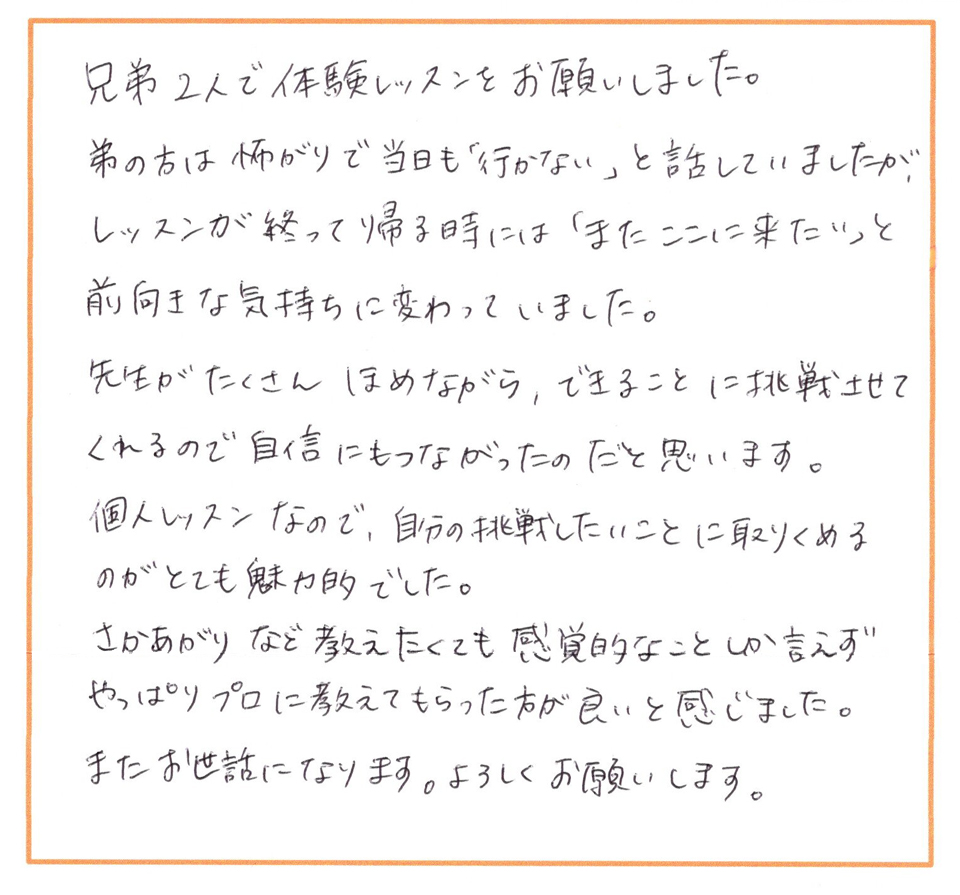 兄弟2人で体験レッスンをお願いしました。
弟の方は怖がりで当日も「行かない」と話していましたが、
レッスンが終って帰る時には「またここに来たい」と
前向きな気持ちに変わっていました。
先生がたくさんほめながら、できることに挑戦させて
くれるので自信にもつながったのだと思います。
個人レッスンなので、自分の挑戦したいことに取りくめる
のがとても魅力的でした。
さかあがりなど教えたくても感覚的なことしか言えず
やっぱりプロに教えてもらった方が良いと感じました。
またお世話になります。よろしくお願いします。